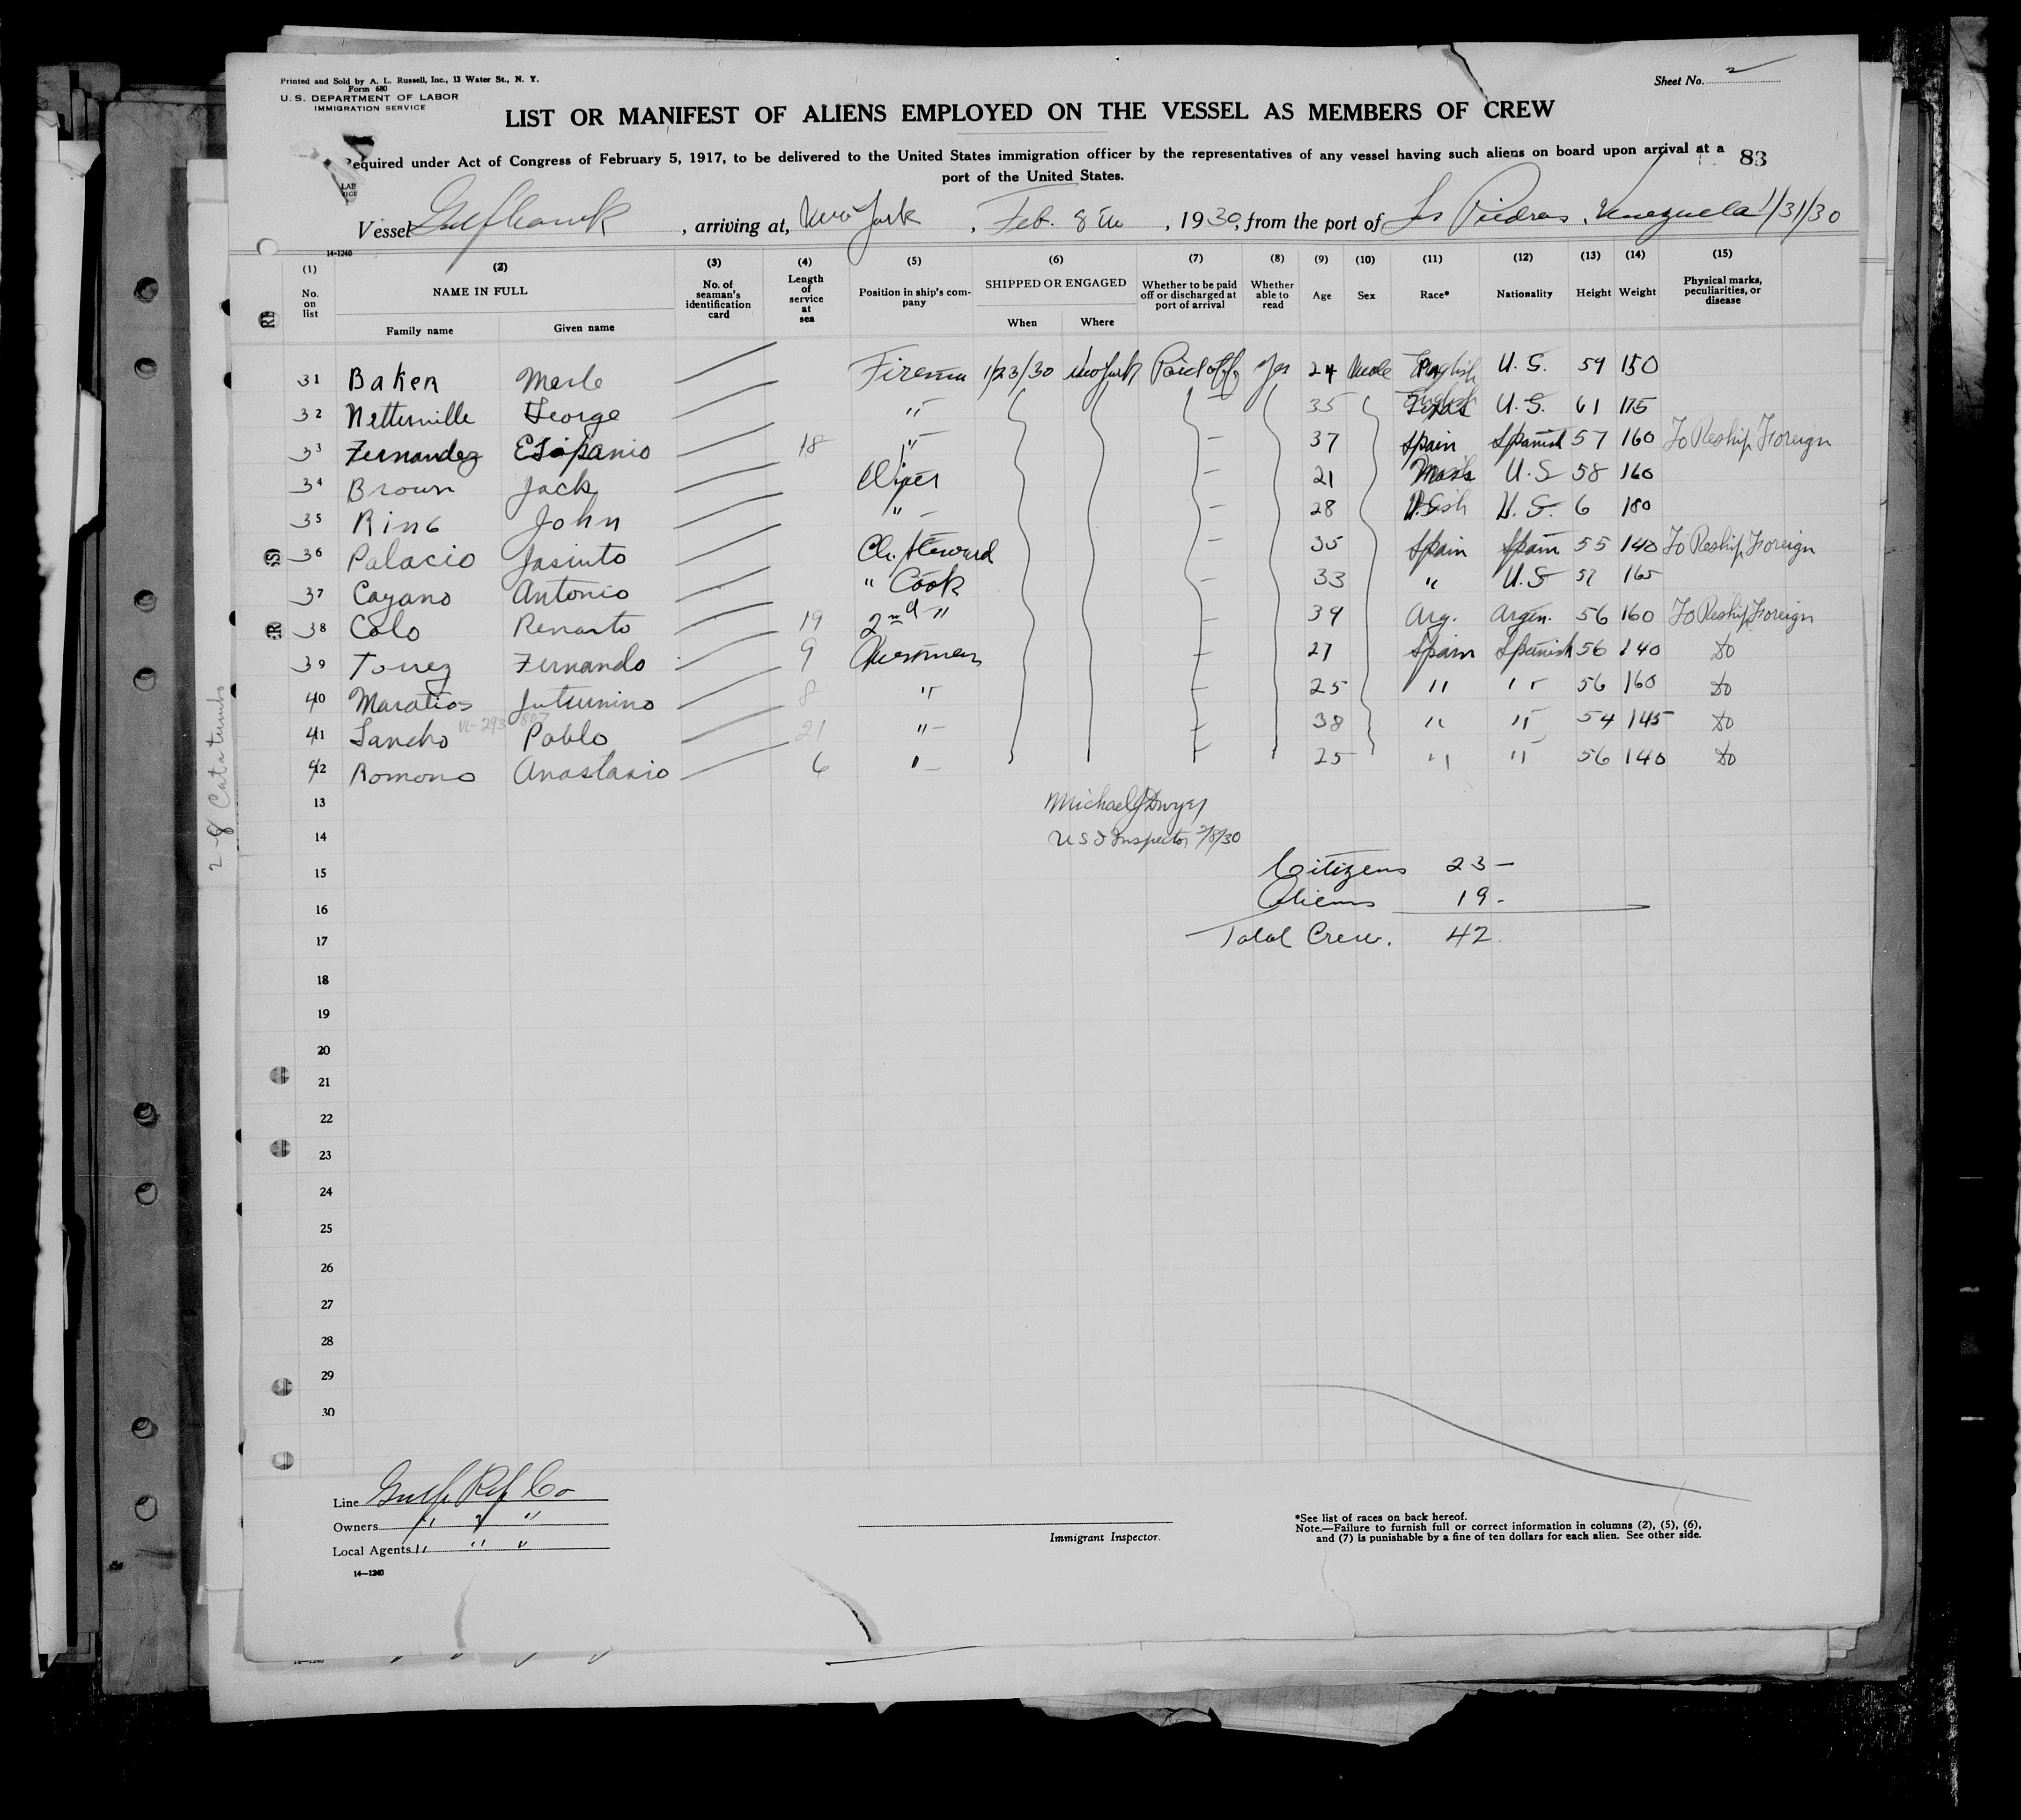 Printed and Sold by A. L. Russell, Inc., 13 Water St., N. Y.
Form 680
U. S. DEPARTMENT OF LABOR
IMMIGRATION SERVICE
Sheet No. 2
LIST OR MANIFEST OF ALIENS EMPLOYED ON THE VESSEL AS MEMBERS OF CREW
Required under Act of Congress of February 5, 1917, to be delivered to the United States immigration officer by the representatives of any vessel having such aliens on board upon arrival at a
port of the United States.
83
Vessel Gulfhawk, arriving at, New York, Feb. 8th, 1930, from the port of Las Piedras, Venezuela 1/31/30
14-1240
(1) (2) (3) (4) (5) (6) (7) (8) (9) (10) (11) (12) (13) (14) (15)
No. on list NAME IN FULL Family name Given name No. of seaman's identification card Length of service at sea Position in ship's company SHIPPED OR ENGAGED When Where Whether to be paid off or discharged at port of arrival Whether able to read Age Sex Race* Nationality Height Weight Physical marks, peculiarities, or disease
31 Baker Merle Fireman 1/23/30 New York Paid off Yes 24 Male English U. S. 59 150
32 Netterville George " 35 English U. S. 61 175
33 Fernandez " 18 37 Spain Spanish 57 160 To Reship Foreign
34 Brown Jack Wiper 21 U. S 58 160
35 Ring John " 28 U. S. 6 180
36 Palacio Jasinto Ch. Steward 35 Spain Spain 55 140 To Reship Foreign
37 Cayano Antonio " Cook 33 " U. S 57 165
38 Colo Renarto 19 2nd " 39 Arg. Argen. 56 160 To Reship Foreign
39 Torrez Fernando 9 27 Spain Spanish 56 140 Do
40 8 " 25 " " 56 160 Do
41 Sancho Pablo 21 " 38 " " 54 145 Do
42 Romono Anastasio 6 " 25 " " 56 140 Do
13 Michael J Dwyer
14 U S I Inspector 2/8/30
15 Citizens 23 —
16 Aliens 19 -
17 Total Crew. 42
18
19
20
21
22
23
24
25
26
27
28
29
30
2-8 Catatumbo
Line Gulf Ref Co
Owners " " "
Local Agents " " "
14—1240
Immigrant Inspector.
*See list of races on back hereof.
Note.—Failure to furnish full or correct information in columns (2), (5), (6),
and (7) is punishable by a fine of ten dollars for each alien. See other side.